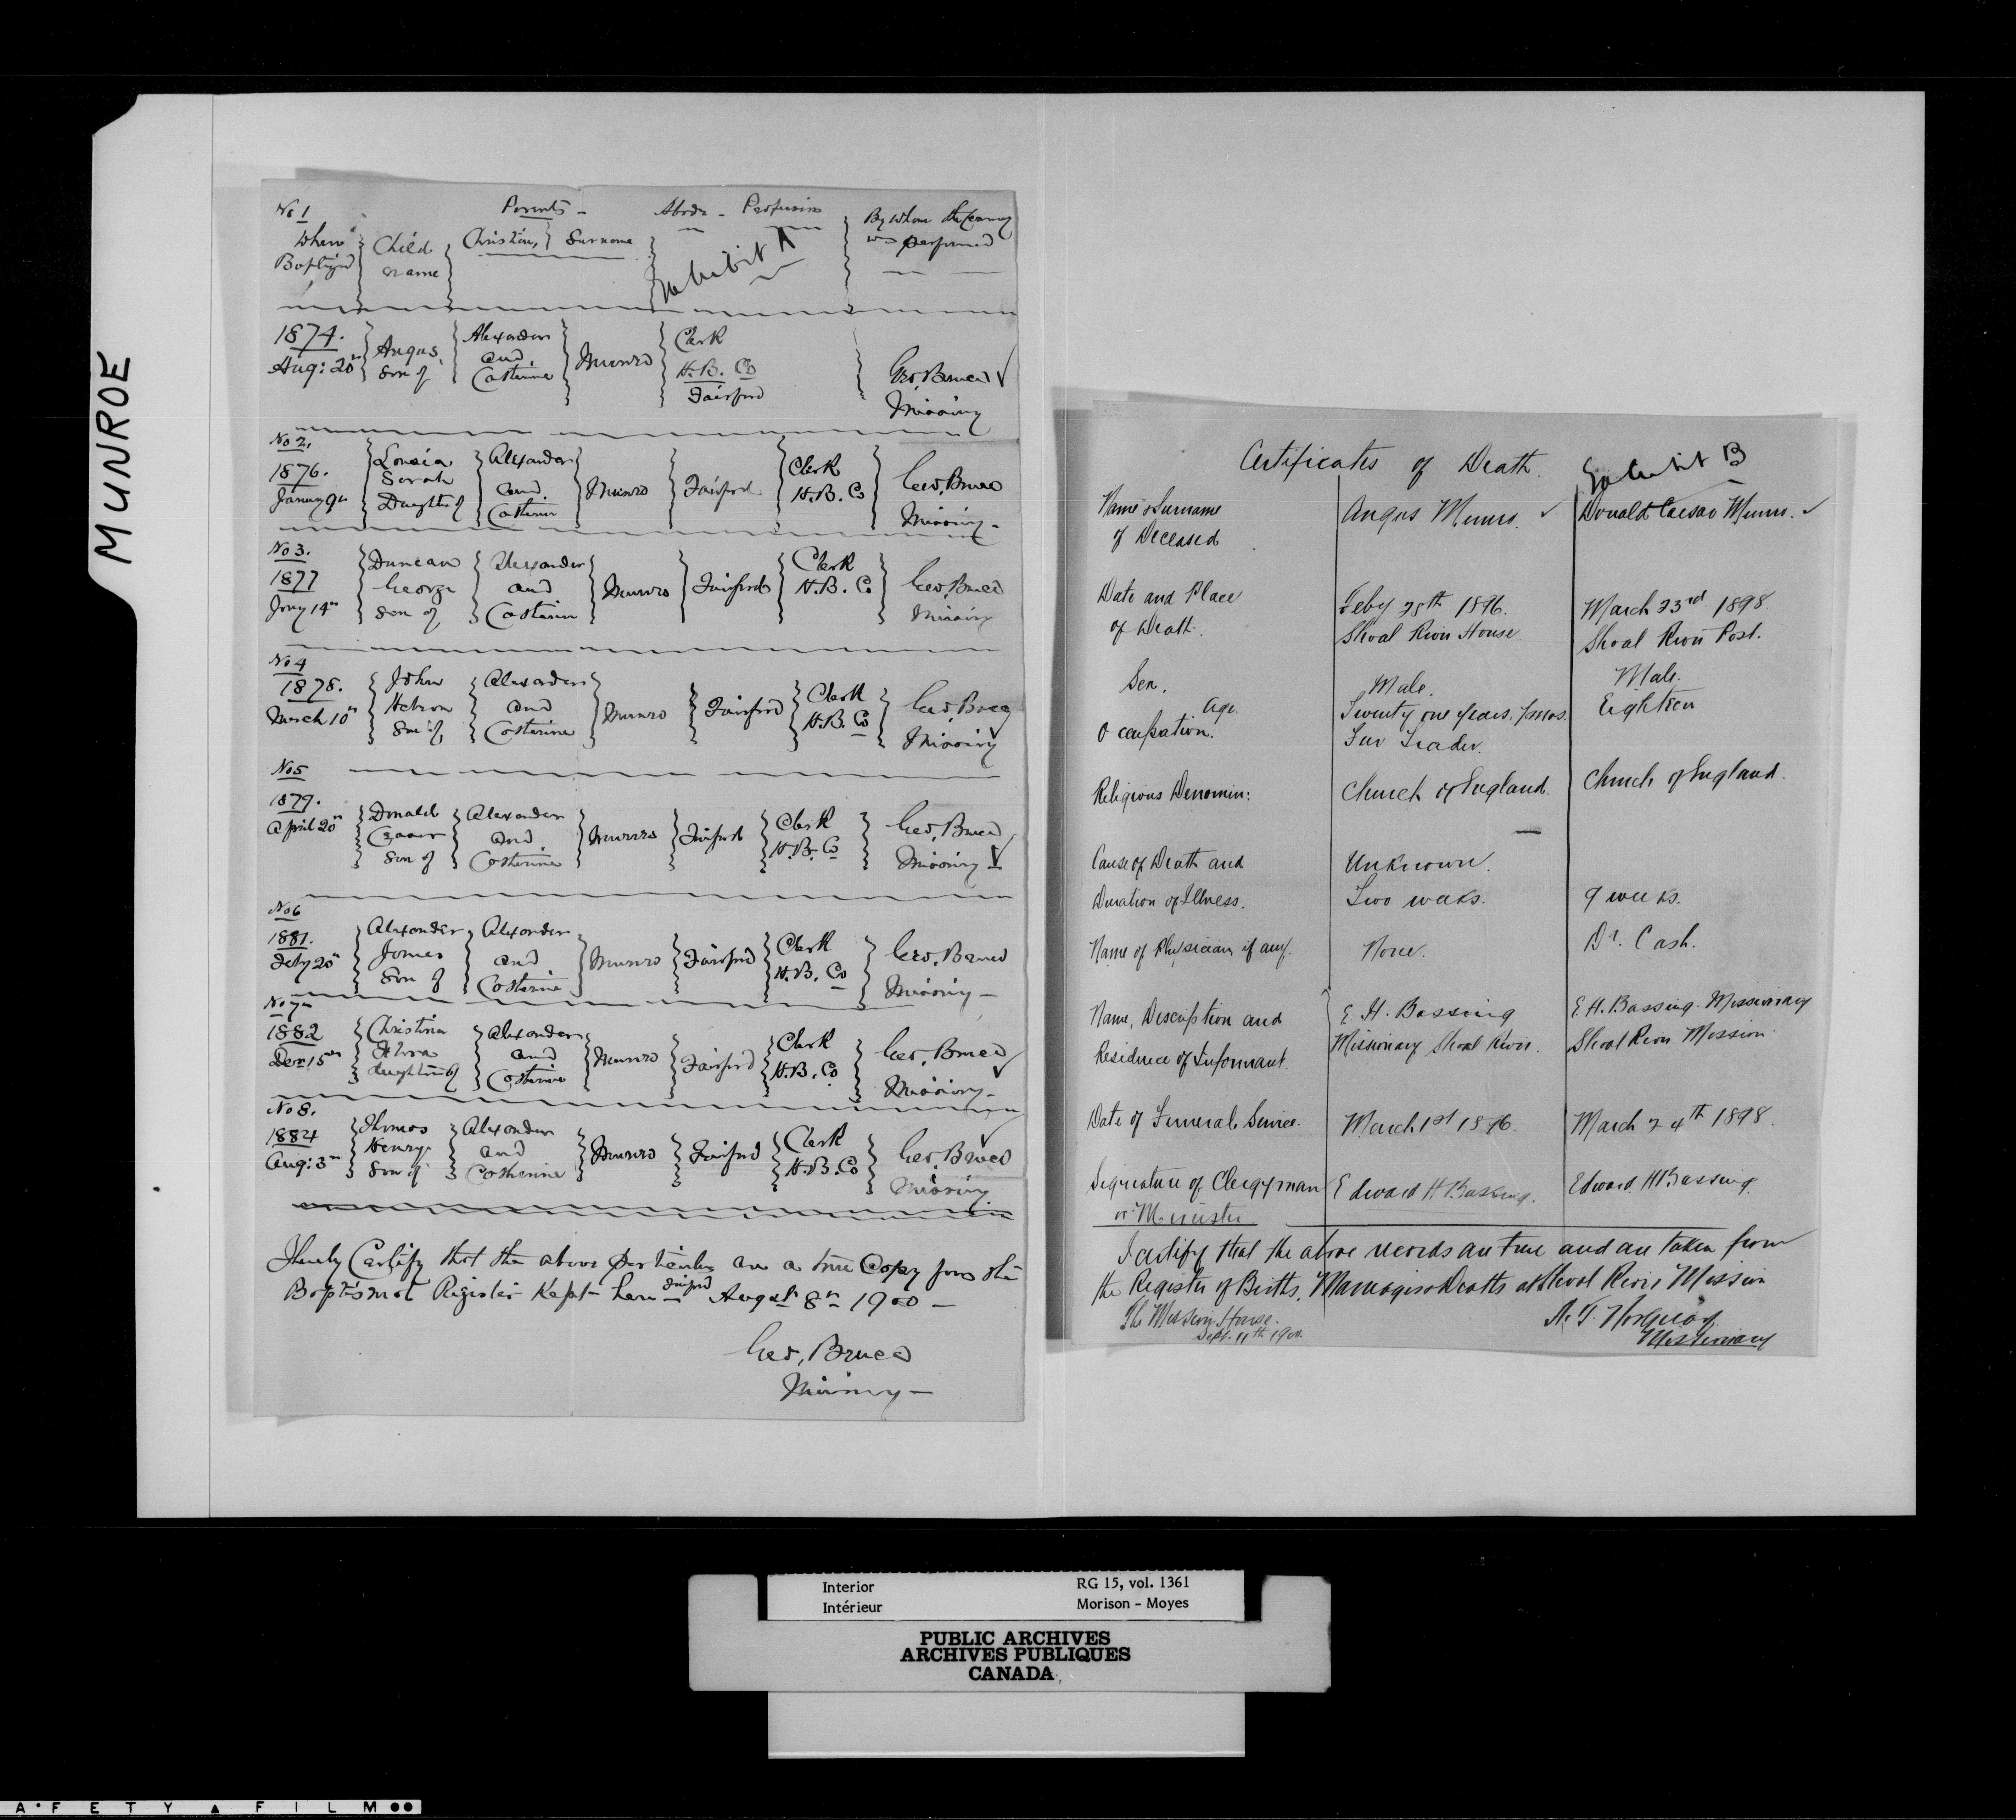 MUNROE
No 1
Parents - Abode - Profession By whom the ceremony
When Child Christian, Surname was performed
Baptized name
Exhibit A
1874. Angus, Alexander Munro Clerk
Aug: 20th Son of and Catherine H.B. Co Geo, Bruce
Fairford Missiony
No 2.
1876. Sarah Alexander Clerk
January 9th Daughter of and Catherine Munro Fairford H.B. Co Geo, Bruce
Missiony -
No 3.
1877 Duncan Alexander Clerk
George and Munro Fairford H.B. Co Geo, Bruce
Jany 14th Son of Catherine Missiony
No 4
1878. John Alexander Clerk
and Munro Fairford H.B. Co Geo, Bruce
March 10th Son of Catherine Missiony
No 5
1879. Donald Alexander Clerk
April 20th Caesar and Munro Fairford H.B. Co Geo, Bruce
Son of Catherine Missiony
No 6
1881. Alexander Alexander Clerk
Feby 20th James and Munro Fairford H.B. Co Geo, Bruce
Son of Catherine Missiony -
No 7
1882 Christina Alexander Clerk
Decr 15th and Munro Fairford H.B. Co Geo, Bruce
daughter of Catherine Missiony -
No 8.
1884 Thomas Alexander Clerk
Aug: 3rd Henry and Munro Fairford H.B. Co Geo, Bruce
Son of Catherine Missiony
I hereby Certify that the above particulars are a true Copy from the
Baptismal Register Kept here Fairford August 8th 1900 -
Geo, Bruce
Missiony -
Certificates of Death. Exhibit B
Name & Surname Angus Munro. Donald Caesar Munro.
of Deceased
Date and Place Feby 28th 1896. March 23rd 1898
of Death. Shoal River House. Shoal River Post.
Sex. Male. Male.
Age. Twenty one years, 7 mos. Eighteen
Occupation. Fur Trader.
Religious Denomin: Church of England. Church of England.
Cause of Death and Unknown.
Duration of Illness. Two weeks. 9 weeks.
Name of Physician if any. None. Dr. Cash.
Name, Description and E. H. Bassing E. H. Bassing. Missionary
Residence of Informant. Missionary Shoal River. Shoal River Mission
Date of Funeral Service. March 1st 1896. March 24th 1898.
Signature of Clergyman Edward H Bassing. Edward H Bassing.
or Minister
I certify that the above records are true and are taken from
the Register of Births, Marriages & Deaths at Shoal River Mission
The Mission House.
Sept. 11th 1900.
Missionary
Interior RG 15, vol. 1361
Intérieur Morison - Moyes
PUBLIC ARCHIVES
ARCHIVES PUBLIQUES
CANADA
A F E T Y ▲ F I L M ●●